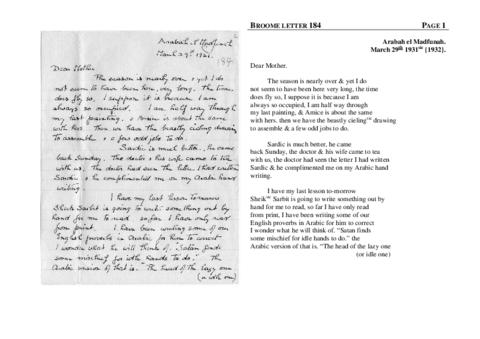 Arabah el Madfunah
March 29th 1931.
184
Dear Mother
The season is nearly over & yet I do
not seem to have been here very long, The time
does fly so, I suppose it is because I am
always so occupied. I am half way through
my last painting, & Amice is about the same
with hers. Then we have the beastly cieling drawing
to assemble & a few odd jobs to do.
Sardic is much better, he came
back Sunday. The doctor & his wife came to tea
with us, the doctor had seen the letter I had written
Sardic & he complimented me on my Arabic hand
writing.
I have my last lesson to-morrow
Sheik Sarbit is going to write something out by
hand for me to read so far I have only read
from print. I have been writing some of our
English proverbs in Arabic for him to correct
I wonder what he will think of. "Satan finds
some mischief for idle hands to do." The
Arabic version of that is. "The head of the lazy one
(or idle one)
BROOME LETTER 184 PAGE 1
Arabah el Madfunah.
March 29th 1931sic [1932].
Dear Mother.
The season is nearly over & yet I do
not seem to have been here very long, the time
does fly so, I suppose it is because I am
always so occupied, I am half way through
my last painting, & Amice is about the same
with hers, then we have the beastly cielingsic drawing
to assemble & a few odd jobs to do.
Sardic is much better, he came
back Sunday, the doctor & his wife came to tea
with us, the doctor had seen the letter I had written
Sardic & he complimented me on my Arabic hand
writing.
I have my last lesson to-morrow
Sheiksic Sarbit is going to write something out by
hand for me to read, so far I have only read
from print, I have been writing some of our
English proverbs in Arabic for him to correct
I wonder what he will think of. "Satan finds
some mischief for idle hands to do." the
Arabic version of that is. "The head of the lazy one
(or idle one)